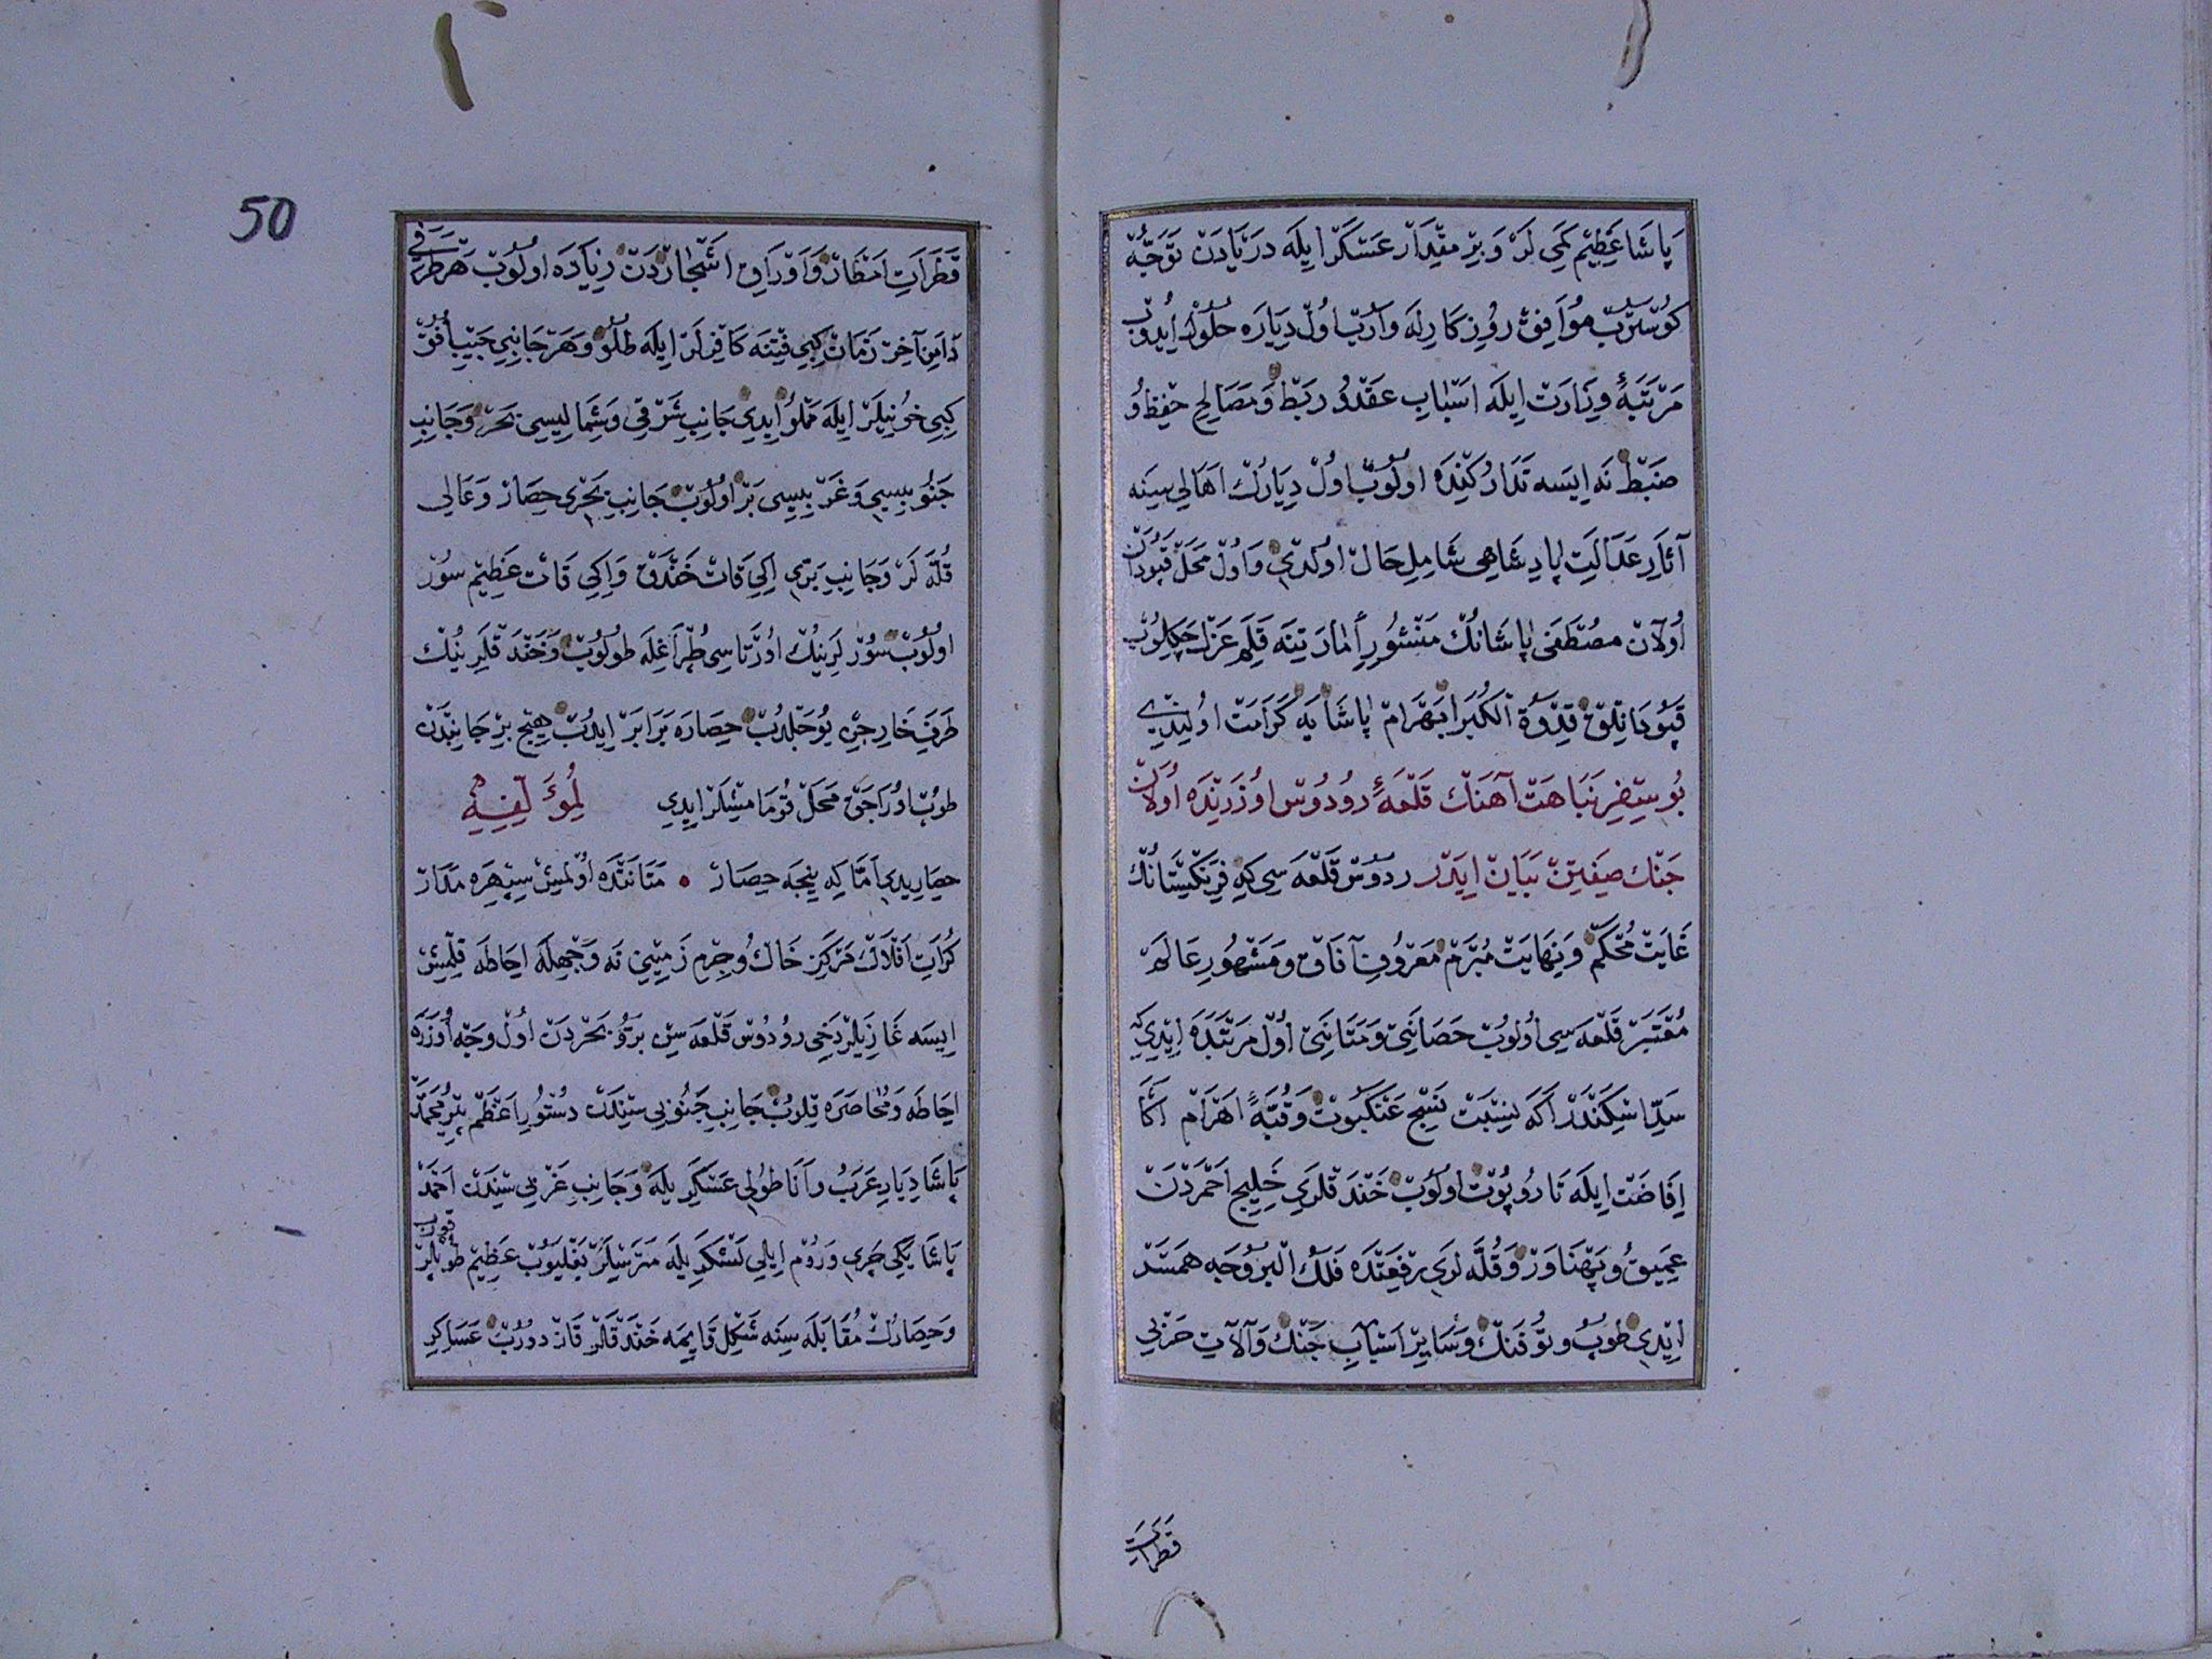 پاشا عظیم كمی لر و بر مقدار عسكر ایله دریادن توجّه
كوستروب موافق روزكارله واروب اول دیاره حلول ایدوب
مرتبهٔ وزارت ایله اسباب عقد و ربط و مصالح حفظ و
ضبط نه ایسه تداركنده اولوب اول دیارك اهالی سینه
آثار عدالت پادشاهی شامل حال اولدی و اول محل قپودان
اولان مصطفی پاشانك منشور امارتینه قلم عزل چكلوب
قپودانلق قدوة الكبرا بهرام پاشایه كرامت اولیندی
بو سفر نباهت آهنك قلعهٔ رودوس اوزرنده اولان
جنك صفیتن بیان ایدر ردوس قلعه سی كه فرنكیستانك
غایت محكم و نهایت مبرم معروف آفاق و مشهور عالم
مقتبر قلعه سی اولوب حصانتی و متانتی اول مرتبده ایدی كه
سدّ اسكندر اكه نسبت نسج عنكبوت و قبّهٔ اهرام اكا
اضافت ایله تار و پوت اولوب خندقلری خلیج احمردن
عمیق و پهناور و قلّه لری رفعتده فلك البروجه همسر
ایدی طوپ و توفنك و سایر اسباب جنك و آلات حربی
قطرات
50
قطرات امطار و اوراق اشجاردن زیاده اولوب هر طرفی
دامن آخر زمان كبی فتنه كافرلر ایله طلو و هر جانبی جیب افق
كبی خونیلر ایله مملو ایدی جانب شرقی و شمالیسی بحر و جانب
جنوبیسی و غربیسی بر اولوب جانب بحری حصار و عالی
قلّه لر و جانب بری ایكی قات خندق و ایكی قات عظیم سور
اولوب سورلرینك اورتاسی طپراغله طولوب و خندقلرینك
طرف خارجی یوجلدوب حصاره برابر ایدوب هیچ بر جانبدن
طوپ اوراجق محل قومامشلر ایدی لمؤلفه
حصاریدی امّا كه نیجه حصار • متانتده اولمش سپهره مدار
كرات افلاك مركز خاك و جرم زمینی نه وجهله احاطه قلمش
ایسه غازیلر دخی رودوس قلعه سین بر و بحردن اول وجه اوزره
احاطه و محاصره قلوب جانب جنوبی سندن دستور اعظم پیر محمد
پاشا دیار عرب و اناطولی عسكریله و جانب غربی سندن احمد
پاشا یكیچری و روم ایلی لشكریله مترسلر بغلیوب عظیم طوپلر قوروب
و حصارك مقابله سینه شكل قایمه خندقلر قازدوروب عساكر